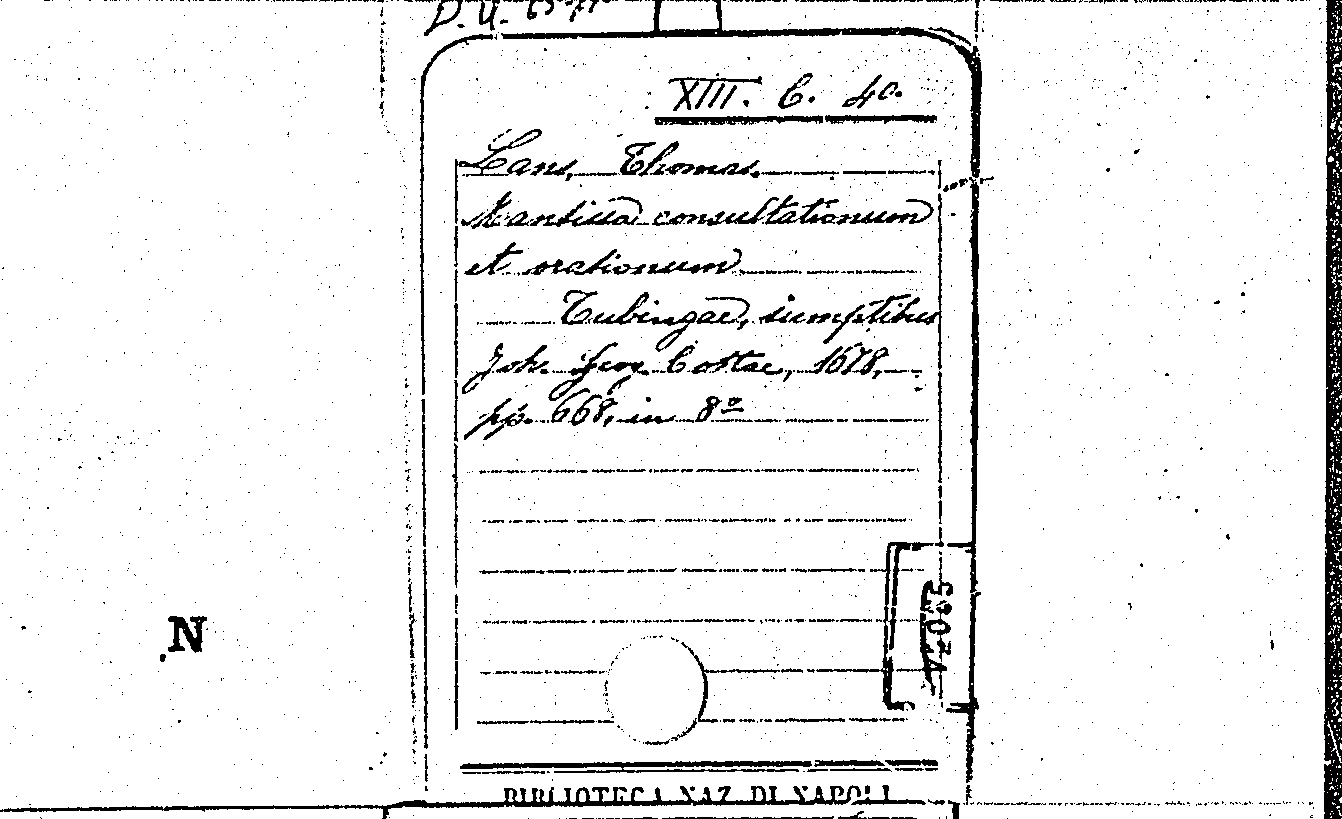 XIII. C. 40.
Lans, Thomas.
Mantissa consultationum
et orationum
Tubingae, sumptibus
Joh. Georg. Cottae, 1678,
pp. 668, in 8º
N
BIBLIOTECA NAZ. DI NAPOLI